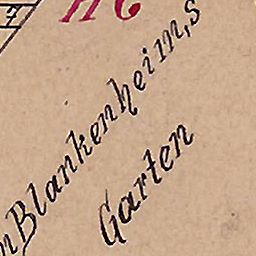 7
Blankenheim,s
Garten